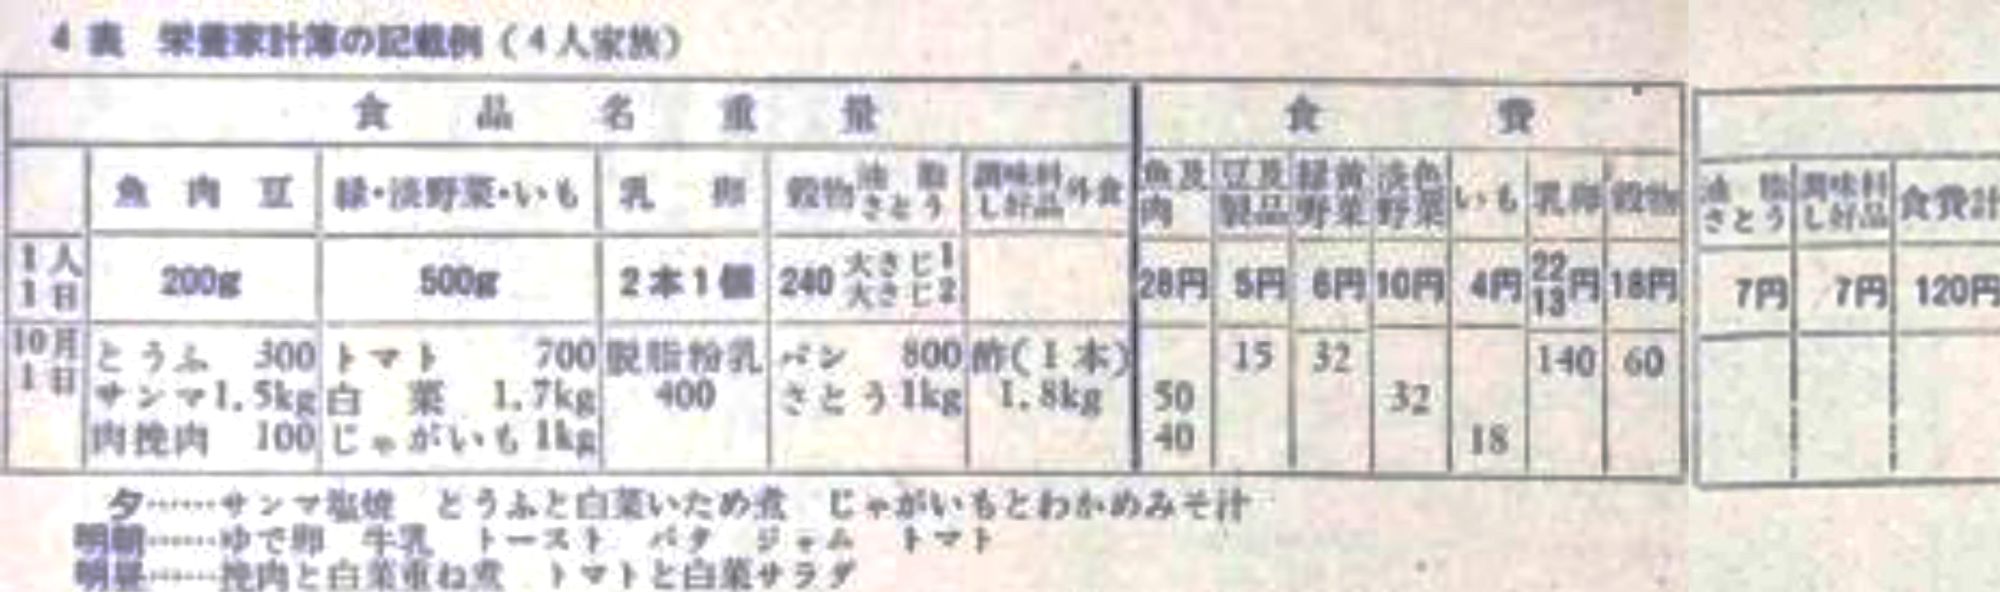 4表 栄養家計簿の記載例（4人家族）
食品名重量 食費
魚肉豆 緑・淡野菜・いも 乳卵 穀物 油脂 さとう 調味料 し好品 外食 魚及肉 豆及製品 緑黄野菜 淡色野菜 いも 乳卵 穀物 油脂 さとう 調味料 し好品 食費計
1人1日 200g 500g 2本1個 240 大さじ1 大さじ2 28円 5円 6円 10円 4円 22 13円 18円 7円 7円 120円
10月 とうふ 300 トマト 700 脱脂粉乳 パン 800 酢（1本） 15 32 140 60
1日 サンマ 1.5kg 白菜 1.7kg 400 さとう 1kg 1.8kg 50 32
肉挽肉 100 じゃがいも 1kg 40 18
夕……サンマ塩焼 とうふと白菜いため煮 じゃがいもとわかめみそ汁
明朝……ゆで卵 牛乳 トースト バタ ジャム トマト
明昼……挽肉と白菜重ね煮 トマトと白菜サラダ